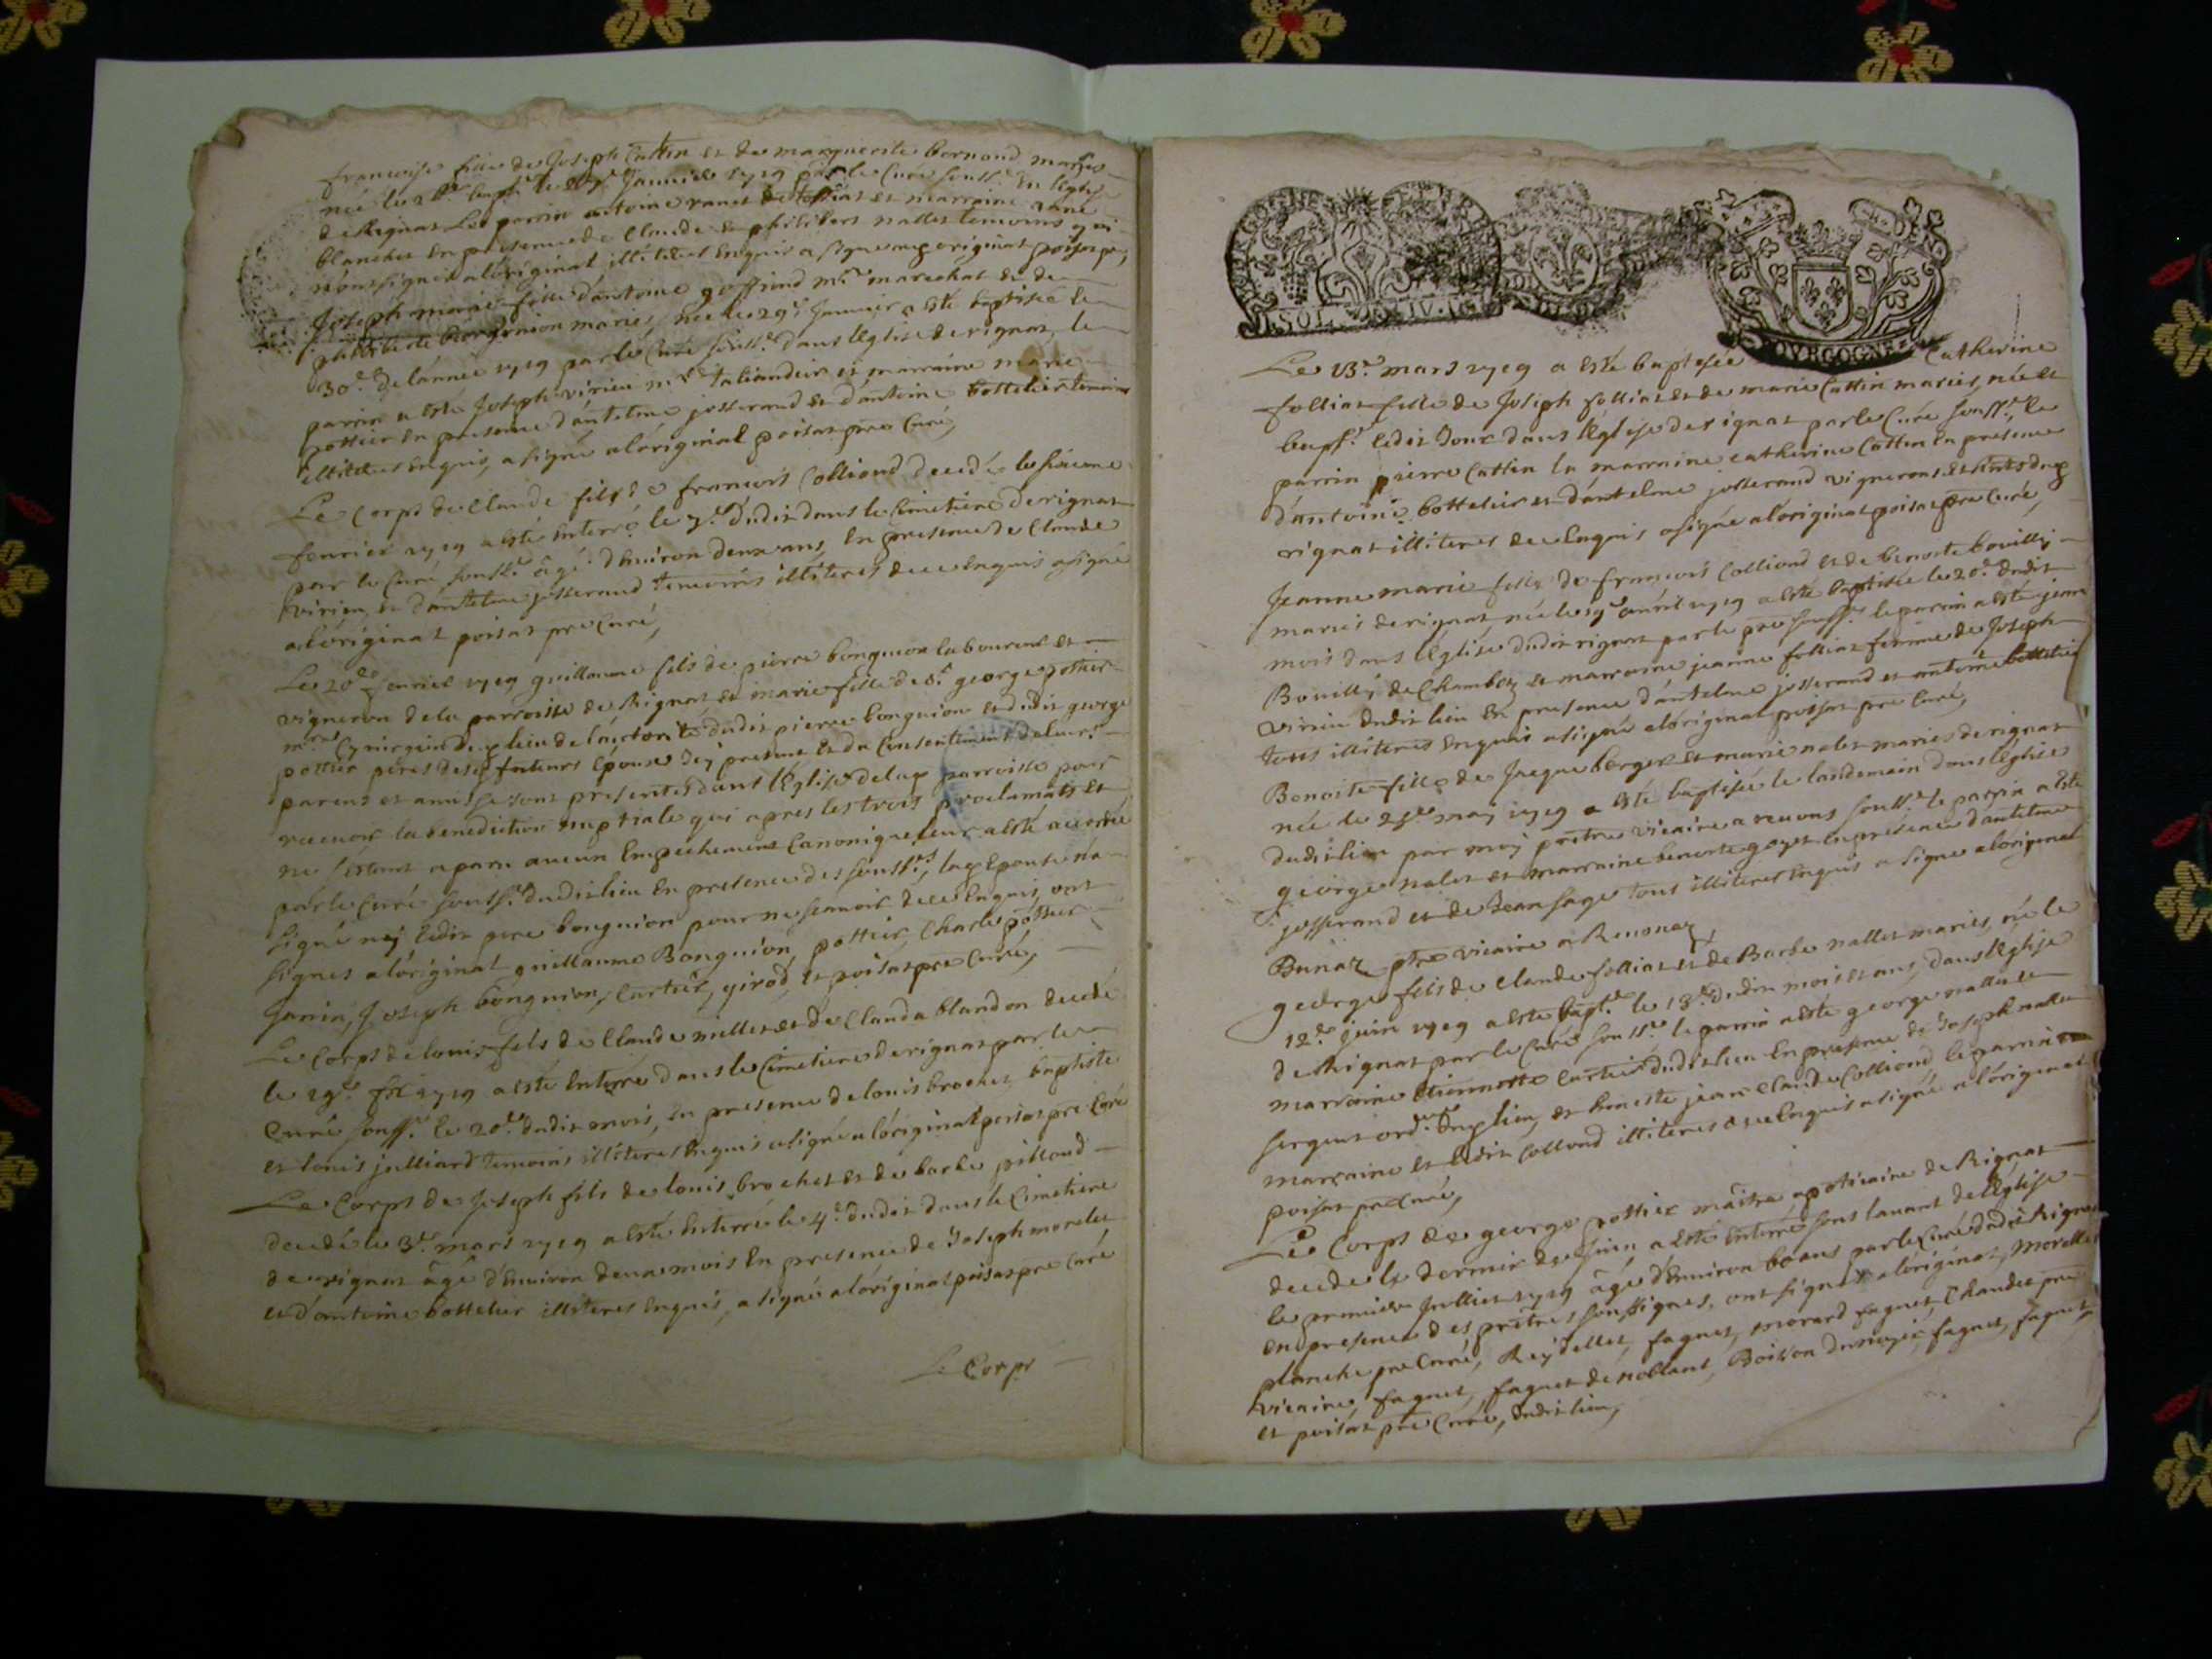 francoise fille de Joseph Cattin et de marguerite bernond maries
née le bapt. le Janvier 1719 par le Curé souss.é En léglise
de Rignat Le parrin antoine et marraine
blanchet En presence de Claude et philibert nallet temoins
non signes a lóriginal illiteres Enquis a signe poisat
Joseph marie fille d'antoine goffrand m.re marechal et de
maries, née le 29.e Janvier a esté baptisée le
30.e de lannée 1719 par le Curé souss.é dans léglise de rignat, le
parrin a esté Joseph virieu m.e taliandeir et marraine marie
pottier En presence dántelme josserand et dántoine bottelier temoins
illiteres Enquis, a signé a lóriginal poisat pre Curé,
Le Corps de Claude fils de francois Colliond decedé le sixieme
fevrier 1719 a esté Enterré le 7.e dudit dans le Cimetiere de rignat
par le Curé souss.é âgé d'Environ deux ans, En presence de Claude
virieu, et dántelme josserand temoins illiteres de ce Enquis a signé
a lóriginal poisat pre Curé,
Le 20.e fevrier 1719 guillaume fils de pierre bonguion laboureur et
vigneron de la parroisse de Rignat, et marie fille de S.r george pottier
m.re Cyrurgien du lieu de láutorité dudit pierre bonguion et dudit george
pottier péres desd futeurs Epoux Icy presens et du Consentement de leurs
parens et amis se sont presentes dans léglise de lad parroisse pour
recevoir la benediction nuptiale qui apres les trois proclamats et
ne sestant aparu aucun Empechement Canonique leur a esté accordée
par le Curé souss.é dudit lieu En presence des souss.es, lad Epouse n'a
signé ny ledit pere bonguion pour ne scavoir de ce Enquis, ont
signes a lóriginal guillaume Bonguion, pottier, Charle pottier
Janin, Joseph bonguion, Cartier, girod, et poisat pre Curé,
Le Corps de louis fils de Claude millet et de Clauda blandon decedé
le 19.e 1719 a esté Enterré dans le Cimetiere de rignat par le
Curé souss.é le 20.e dudit mois, En presence de louis brochet, baptiste
et louis julliard temoins illiteres Enquis a signé a lóriginal poisat pre Curé
Le Corps de Joseph fils de louis brochet et de barbe pilloud
decedé le 3.e mars 1719 a esté Enterré le 4.e dudit dans le Cimetiere
de rignat âgé d'Environ deux mois En presence de Joseph morelet
et d'antoine bottelier illiteres Enquis, a signé a lóriginal poisat pre Curé
Le Corps
SOL
BOVRGOGNE
Le 13.e mars 1719 a esté baptisée Catherine
folliat fille de Joseph folliat et de marie Cattin maries, née et
bapt.é ledit Jour dans léglise de rignat par le Curé souss.é, le
parrin pierre Cattin la marraine catherine Cattin En presence
d'antoine bottelier et dántelme josserand vignerons
rignat illiteres de ce Enquis a signé a lóriginal poisat pre Curé,
Jeanne marie fille de francois Colliond et de benoite bouilly
maries de rignat, née le 19.e avril 1719 a esté baptisée le 20.e dudit
mois dans léglise dudit rignat par le pre souss.é le parrin a esté jean
Bouilly de Chambod et marraine jeanne folliat femme de Joseph
virieu dudit lieu En presence dántelme josserand et antoine bottelier
tous illiteres Enquis a signé a lóriginal poisat pre Curé,
Benoite fille de Jaque berger et marie nalet maries de rignat
née le may 1719 a esté baptisée le landemain dans léglise
dudit lieu par moy prêtre vicaire a revonas souss.é le parrin a esté
george nalet et marraine benoite goyet En présence dántelme
josserand et de Jean sage tous illiteres Enquis a signe a lóriginal
Bunaz ptre vicaire a Revonaz,
george fils de Claude folliat et de Barbe nallet maries, né le
12.e juin 1719 a esté bapt.é le 13.e dudit mois et an, dans léglise
de Rignat par le Curé souss.é, le parrin a esté george nallet et
marraine Etiennette Cartier dudit lieu En presence de Joseph nallet
sergent ord.re dud lieu, et honeste jean Claude Colliond le parrin
marraine et ledit Colliond illiteres de ce Enquis a signé a lóriginal
poisat pre Curé,
Le Corps de george pottier maître apoticaire de Rignat
decede le dernier de juin a esté Enterré sous lauvant de léglise
le premier Julliet 1719 âgé d'Environ 60 ans par le Curé dudit Rignat
en presence des prêtres soussignes, ont signes a lóriginal, Morellet
planche pre Curé, Reydellet, faguet, morard faguet, Chandee pre
vicaire, faguet, faguet de noblans, Boisson faguet, faguet
et poisat pre Curé, dudit lieu,